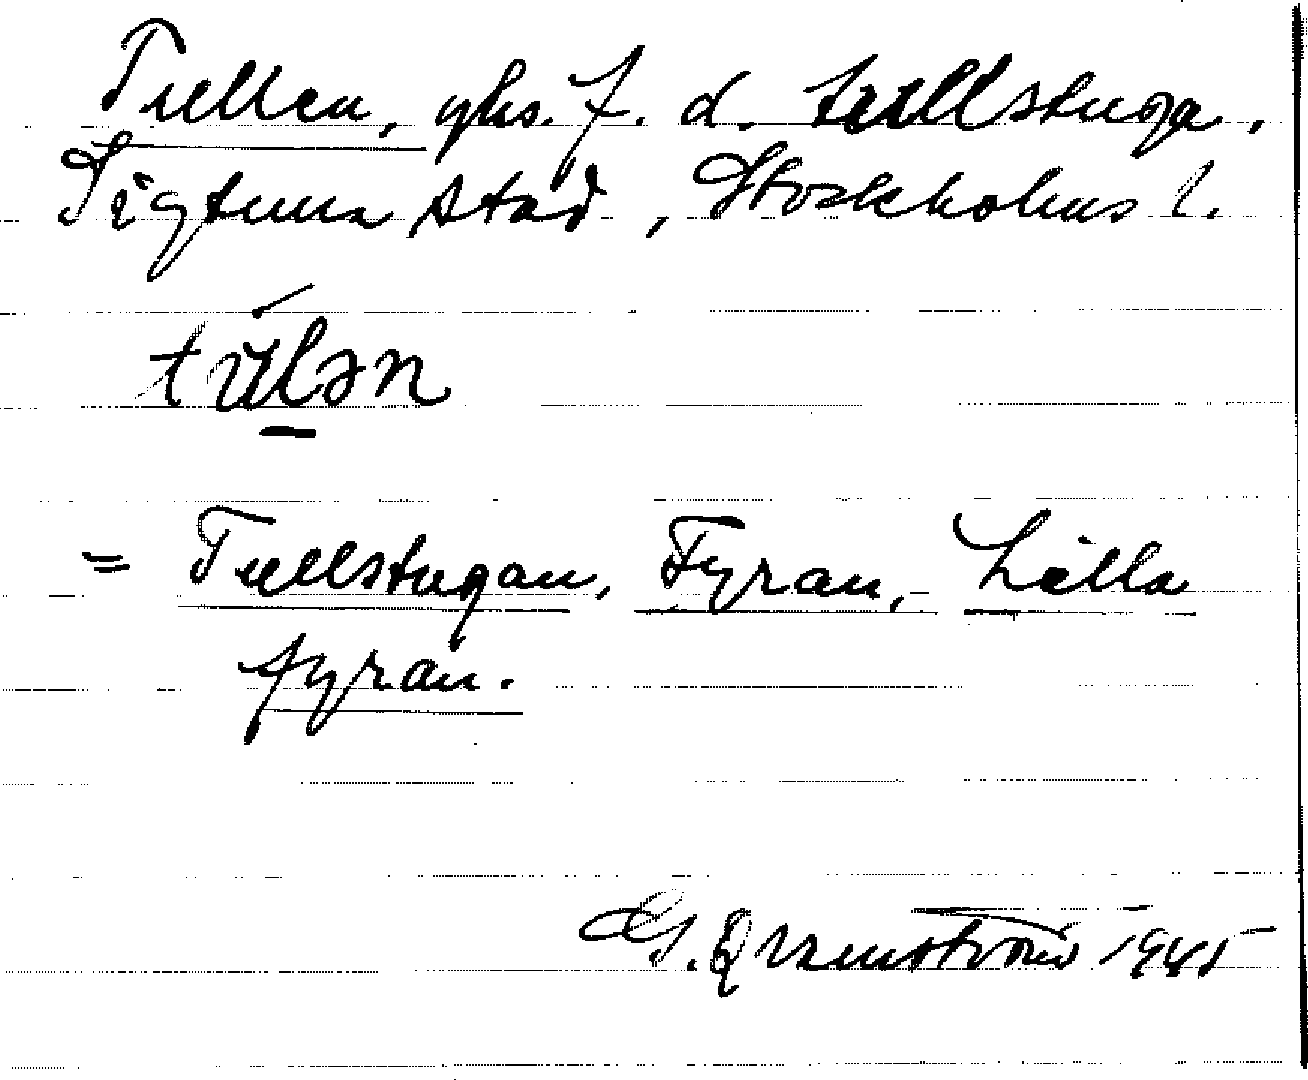 Tullen, ghs. f. d. tullstuga,
Sigtuna stad, Stockholms l.
túlən
= Tullstugan, Fyran, Lilla
fyran.
G. Qvarnström 1945